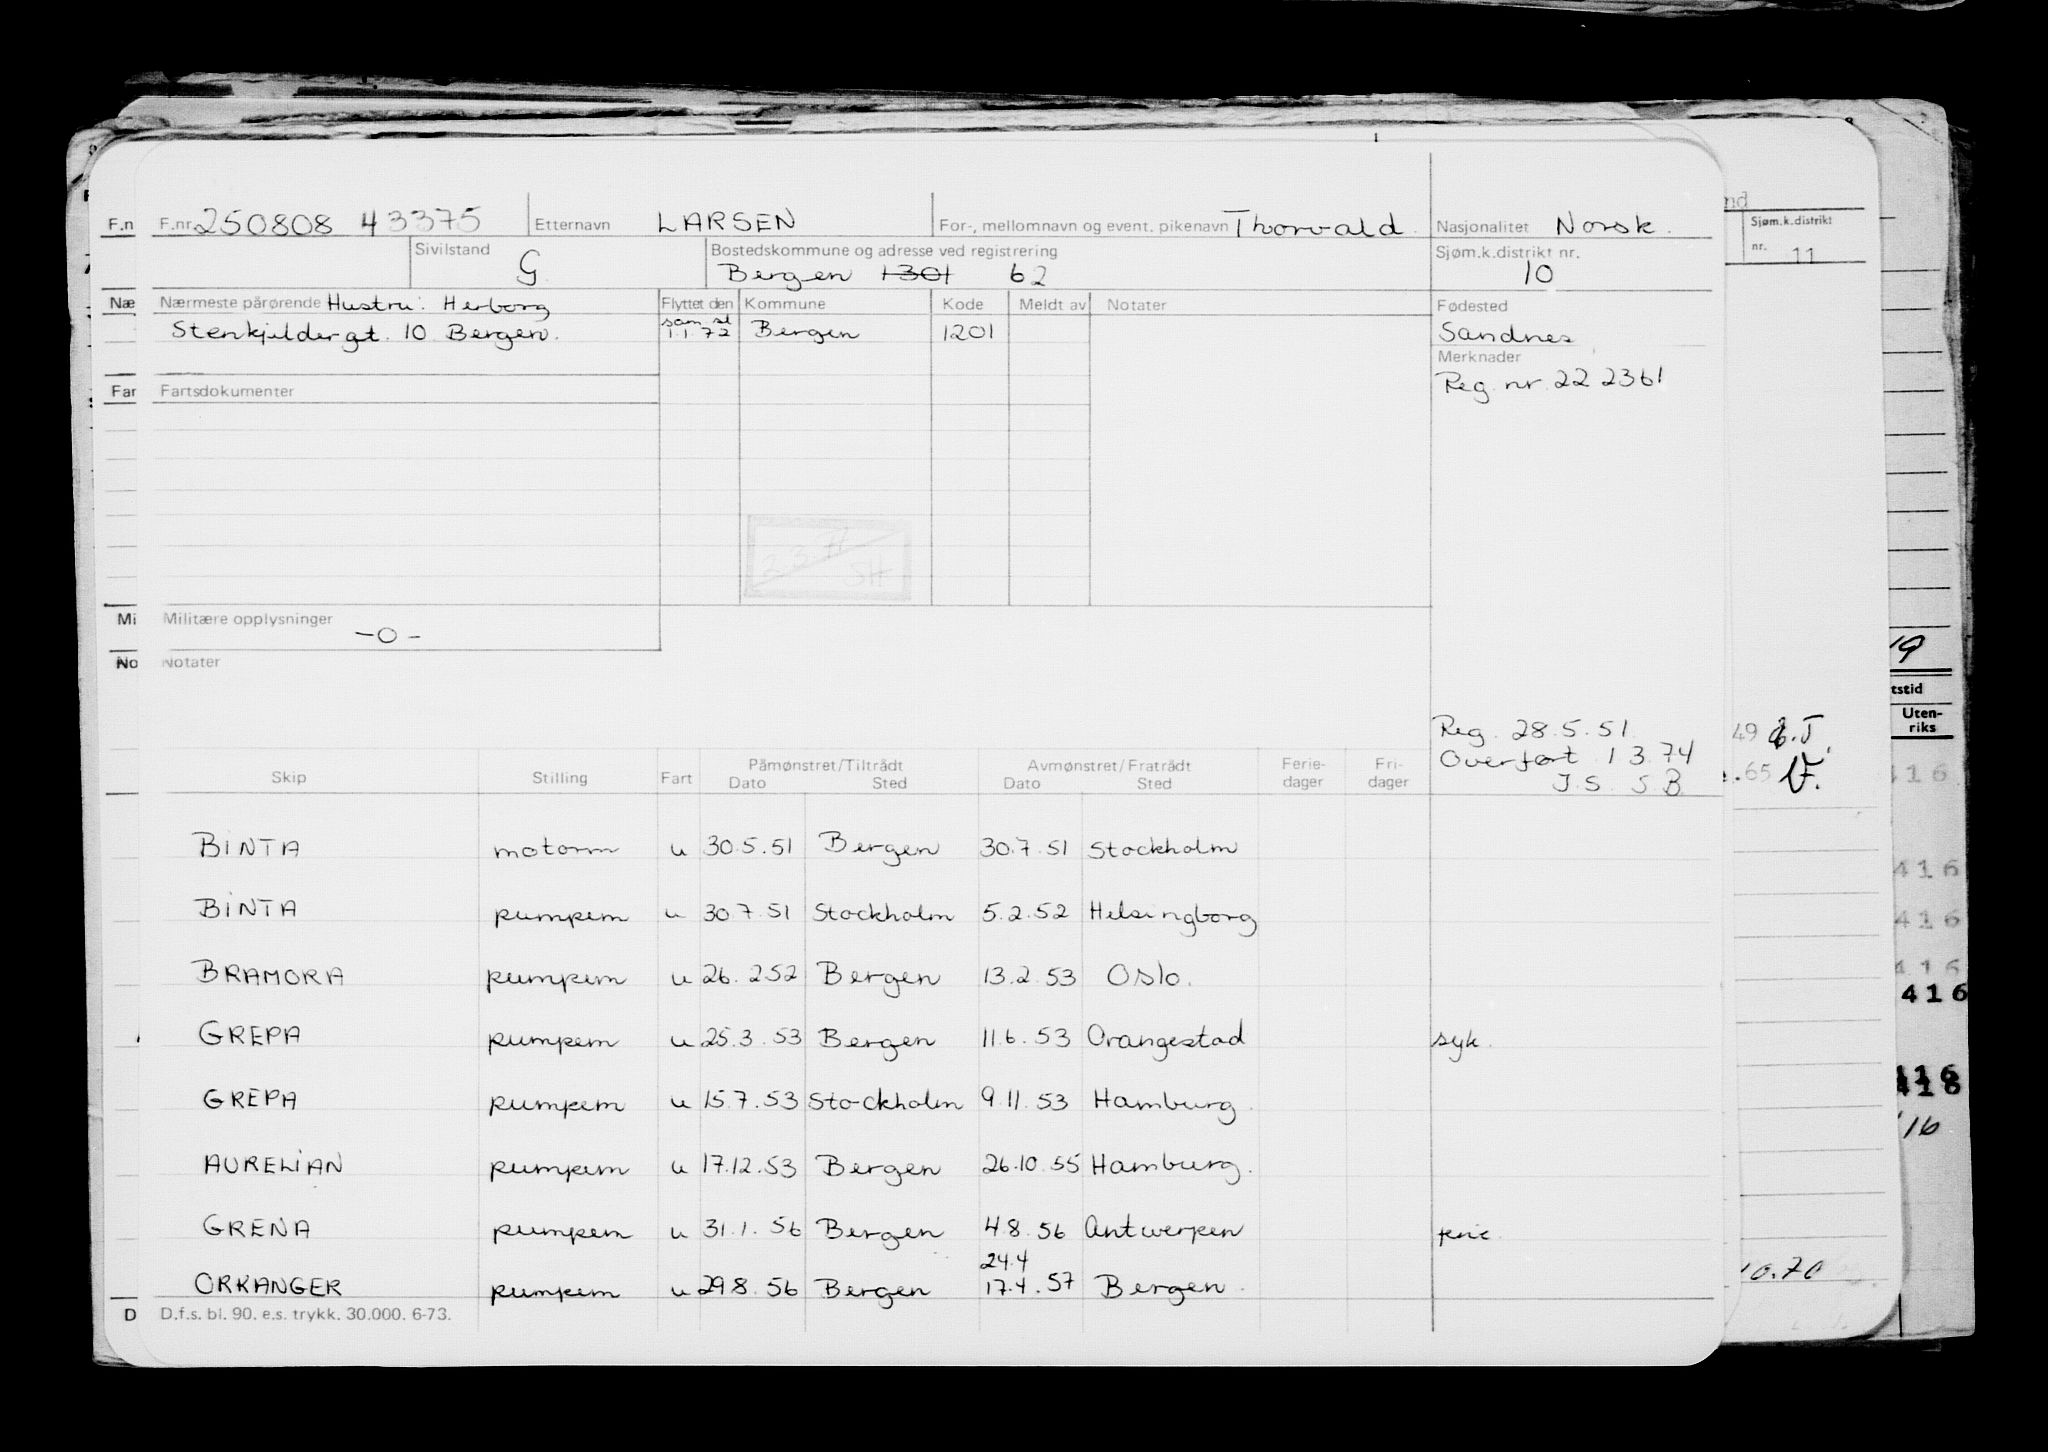 F.nr. 250808 43375 Etternavn LARSEN For-, mellomnavn og event. pikenavn Thorvald. Nasjonalitet Norsk.
Sivilstand G. Bostedskommune og adresse ved registrering Bergen 1301 62 Sjøm.k.distrikt nr. 10
Nærmeste pårørende Hustru: Herborg Flyttet den Kommune Kode Meldt av Notater Fødested
Stenkjeldergt. 10 Bergen. 1.1.72 Bergen 1201 Sandnes
Merknader
Reg. nr. 222361
Fartsdokumenter
Militære opplysninger
-0-
Notater
Reg. 28.5.51
Overført 1 3.74
J.S. S.B.
Skip Stilling Fart Påmønstret/Tiltrådt Dato Sted Avmønstret/Fratrådt Dato Sted Ferie-dager Fri-dager
BINTA motorm u 30.5.51 Bergen 30.7.51 Stockholm
BINTA pumpem u 30 7.51 Stockholm 5.2.52 Helsingborg
BRAMORA pumpem u 26. 2 52 Bergen 13.2.53 Oslo.
GREPA pumpem u 25.3.53 Bergen 11.6.53 Orangestad syk.
GREPA pumpem u 15.7.53 Stockholm 9.11.53 Hamburg.
AURELIAN pumpem u 17.12.53 Bergen 26.10.55 Hamburg.
GRENA pumpem u 31.1.56 Bergen 4.8.56 Antwerpen
24.4
ORKANGER pumpem u 29.8.56 Bergen 17.4.57 Bergen.
D.f.s. bl. 90. e.s. trykk. 30.000. 6-73.
F.n
Næ
Far
Mi
No
D
nd
Sjøm.k.distrikt
nr. 11
19
tstid
Uten-
riks
49
.65
416
416
416
416
416
416
418
16
10.70